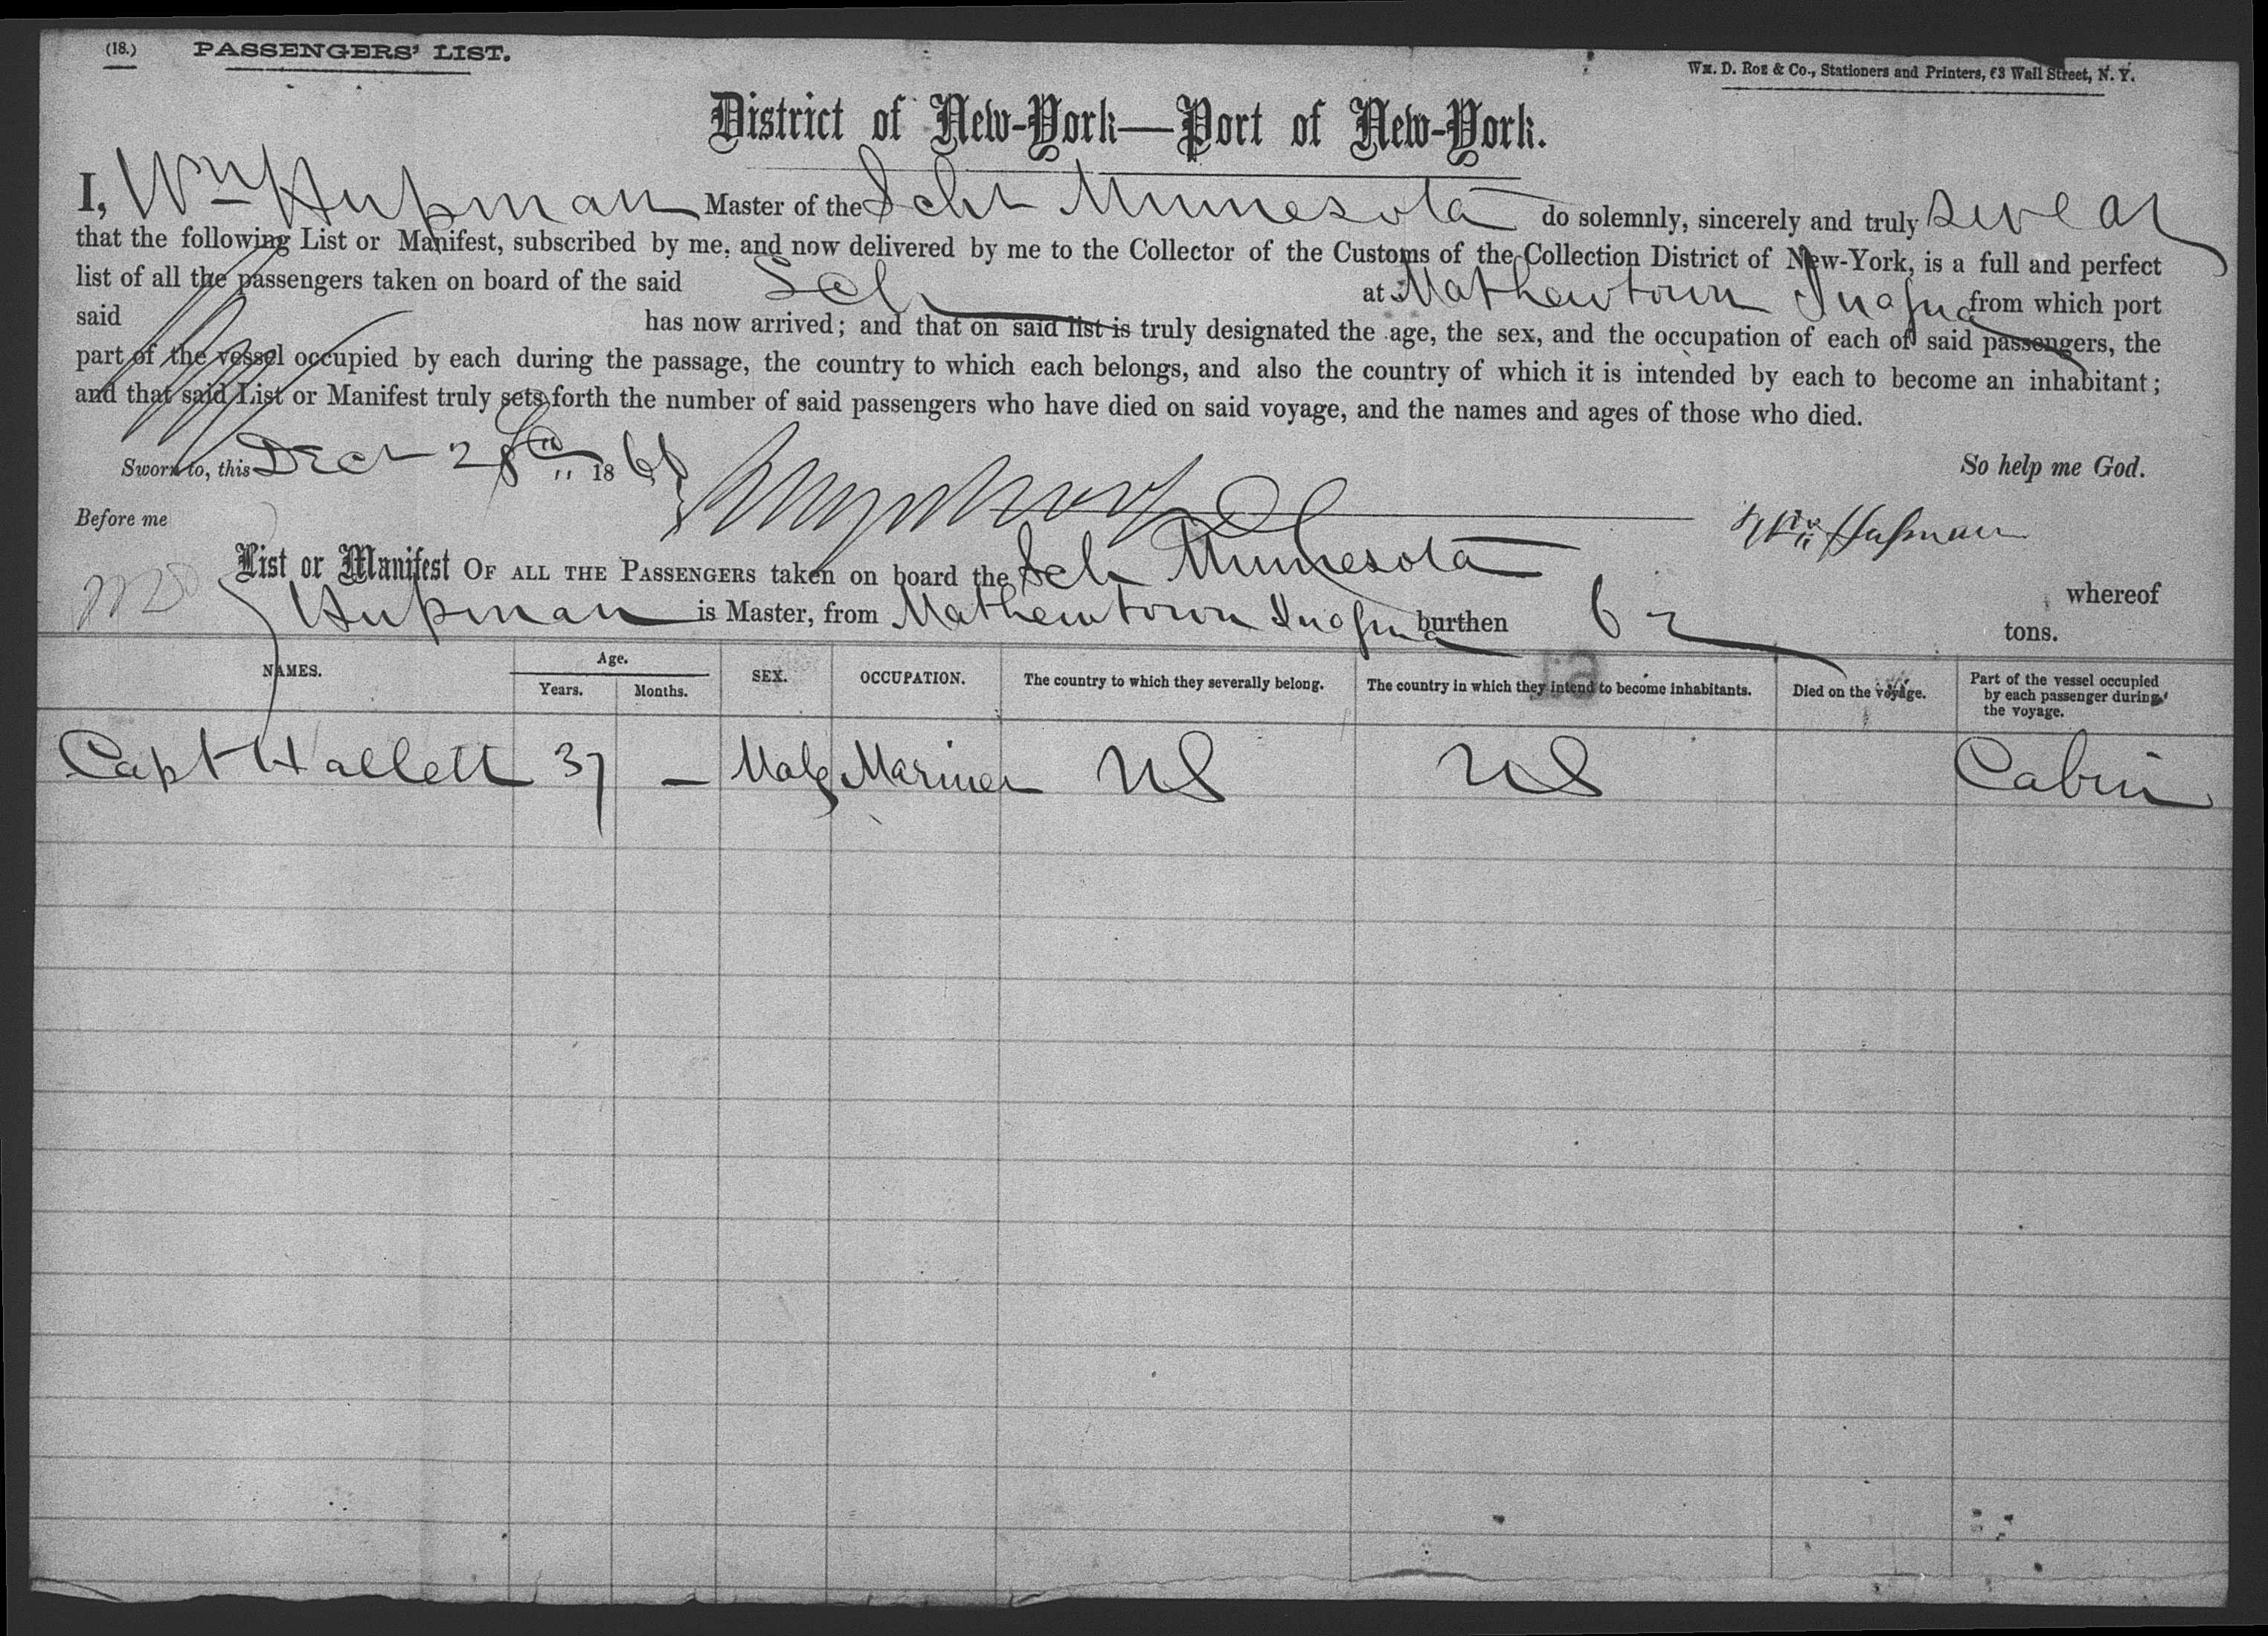 (18.) PASSENGERS' LIST.
Wm. D. Roe & Co., Stationers and Printers, 63 Wall Street, N. Y.
District of New-York—Port of New-York.
I, Wm Hupman Master of the Schr Minnesota do solemnly, sincerely and truly swear
that the following List or Manifest, subscribed by me, and now delivered by me to the Collector of the Customs of the Collection District of New-York, is a full and perfect
list of all the passengers taken on board of the said Sch at Mathewtown Inagua from which port
said has now arrived; and that on said list is truly designated the age, the sex, and the occupation of each of said passengers, the
part of the vessel occupied by each during the passage, the country to which each belongs, and also the country of which it is intended by each to become an inhabitant;
and that said List or Manifest truly sets forth the number of said passengers who have died on said voyage, and the names and ages of those who died.
Sworn to, this Decr 28th 1866 So help me God.
Before me Wm Hupman
List or Manifest OF ALL THE PASSENGERS taken on board the Sch Minnesota whereof
Hupman is Master, from Mathewtown Inagua burthen 62 tons.
NAMES. Age. Years. Months. SEX. OCCUPATION. The country to which they severally belong. The country in which they intend to become inhabitants. Died on the voyage. Part of the vessel occupied by each passenger during the voyage.
Capt Hallett 37 — Male Mariner US US Cabin